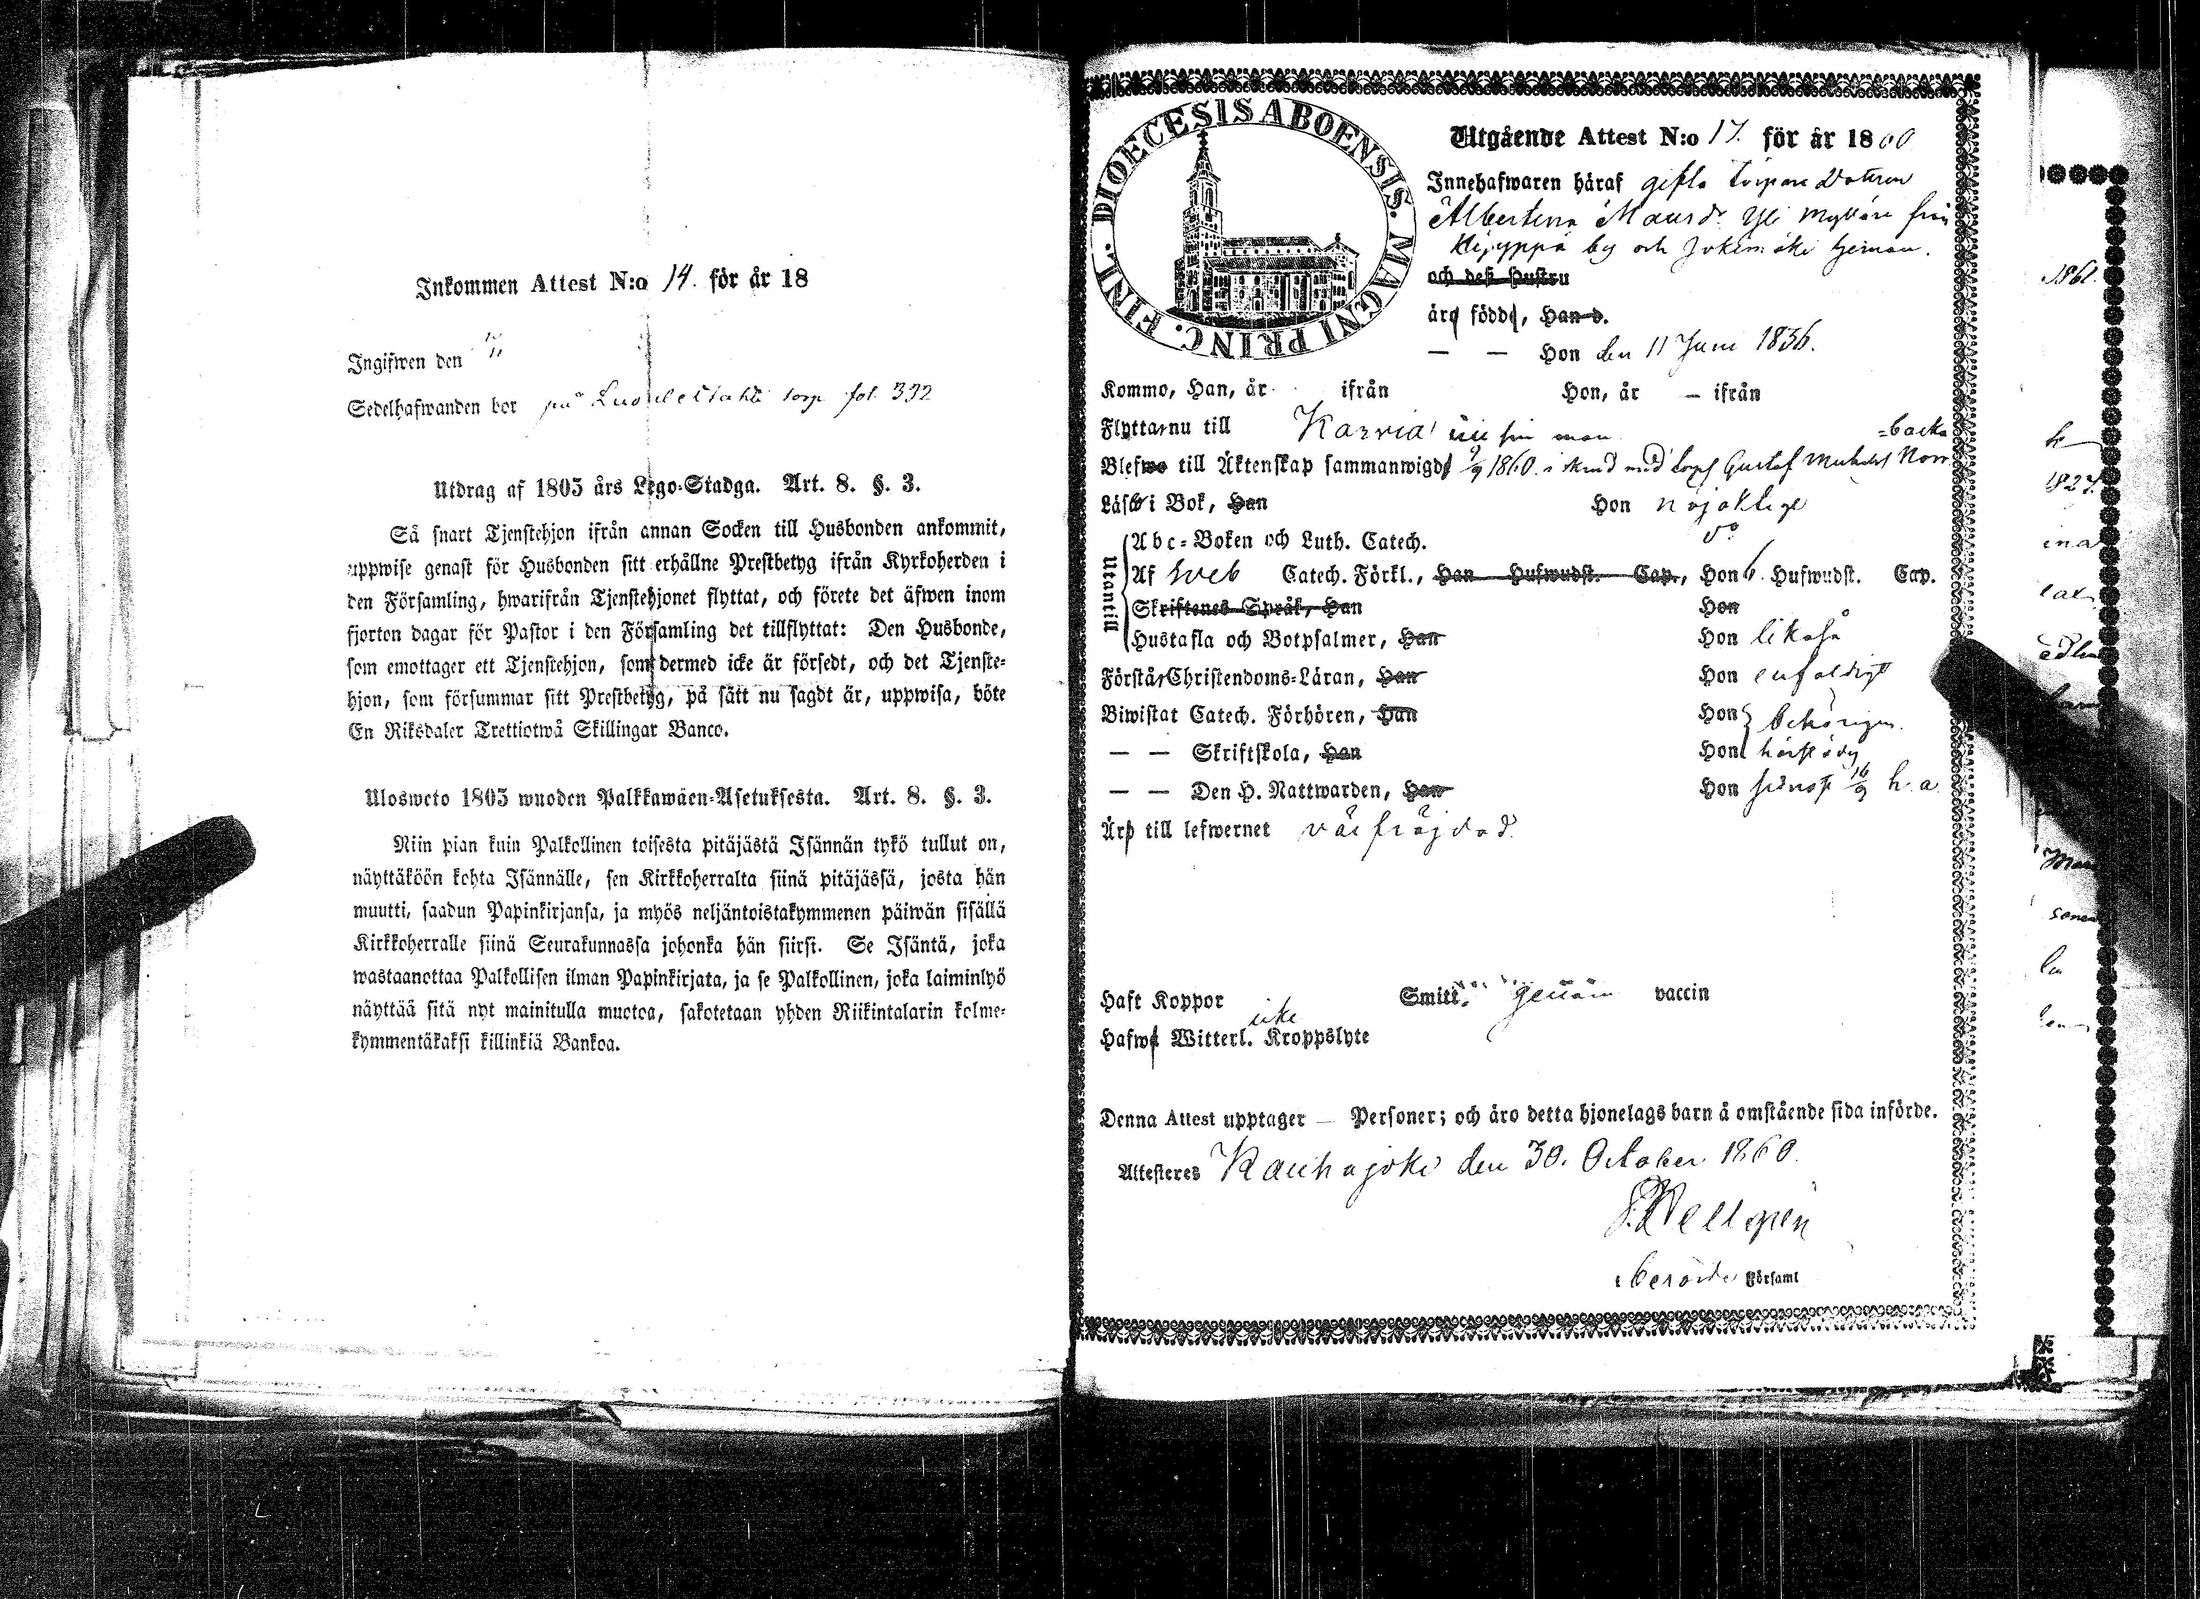 Inkommen Attest N:o 14. för år 18
Ingifwen den 11
Sedelhafwanden bor på torp fol. 392
Utdrag af 1805 års Lego-Stadga. Art. 8. §. 3.
Så snart Tjenstehjon ifrån annan Socken till Husbonden ankommit,
uppwise genast för Husbonden sitt erhållne Prestbetyg ifrån Kyrkoherden i
den Församling, hwarifrån Tjenstehjonet flyttat, och förete det äfwen inom
fjorton dagar för Pastor i den Församling det tillflyttat: Den Husbonde,
som emottager ett Tjenstehjon, som dermed icke är försedt, och det Tjenste-
hjon, som försummar sitt Prestbetyg, på sätt nu sagdt är, uppwisa, böte
En Riksdaler Trettiotwå Skillingar Banco.
Ulosweto 1805 wuoden Palkkawäen-Asetuksesta. Art. 8. §. 3.
Niin pian kuin Palkollinen toisesta pitäjästä Isännän tykö tullut on,
näyttäköön kohta Isännälle, sen Kirkkoherralta siinä pitäjässä, josta hän
muutti, saadun Papinkirjansa, ja myös neljäntoistakymmenen päiwän sisällä
Kirkkoherralle siinä Seurakunnassa johonka hän siirsi. Se Isäntä, joka
wastaanottaa Palkollisen ilman Papinkirjata, ja se Palkollinen, joka laiminlyö
näyttää sitä nyt mainitulla muotoa, sakotetaan yhden Riikintalarin kolme-
kymmentäkaksi killinkiä Bankoa.
DIOECESIS ABOENSIS. MAGNI PRINC. FINL.
Utgående Attest N:o 17. för år 1860
Innehafwaren häraf gifta torpare Dotteren
Albertina Mausdr Yli Mylläri från
by och Jokimäki heman.
och deß Hustru
äro födde, Han d.
— — Hon den 11 Juni 1836.
Kommo, Han, år ifrån Hon, år — ifrån
Flytta nu till Karvia till sin man
Blefwo till Äktenskap sammanwigde 9/9 1860 i med Gustaf Norr-
=backa
Läser i Bok, Han Hon nöjaktigt
Utantill
Abc-Boken och Luth. Catech. do
Af Sveb Catech. Förkl., Han Hufwudst. Cap., Hon 6 Hufwudst. Cap.
Skriftenes Språk, Han Hon
Hustafla och Botpsalmer, Han Hon likaså
Förstår Christendoms-Läran, Han Hon enfaldigt
Biwistat Catech. Förhören, Han Hon behörigen
— — Skriftskola, Han Hon
— — Den H. Nattwarden, Han Hon sednast 16/9 h. a.
Är till lefwernet välfräjdad.
Haft Koppor Smitt. genom vaccin
Hafwa Witterl. icke Kroppslyte
Denna Attest upptager — Personer; och äro detta hjonelags barn å omstående sida införde.
Attesteres Kauhajoki den 30. October 1860.
Församl